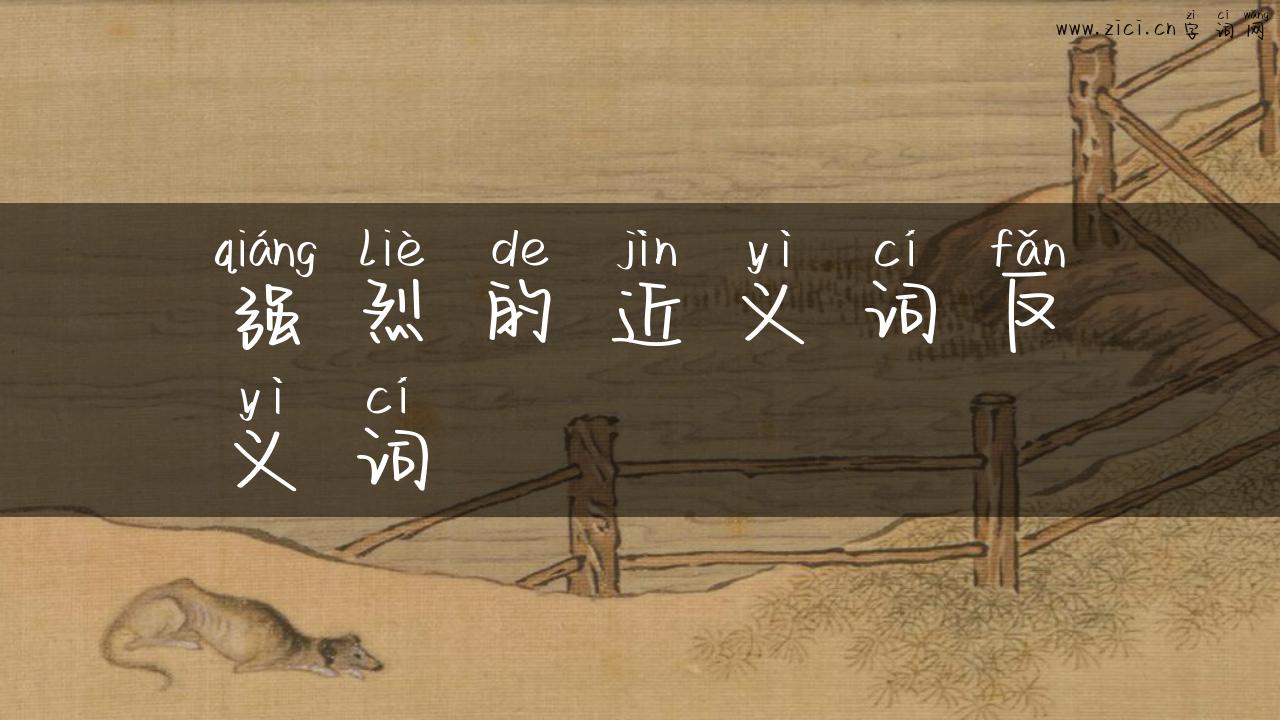 zì cí wǎng
www.zici.cn 字词网
qiáng liè de jìn yì cí fǎn
强烈的近义词反
yì cí
义词